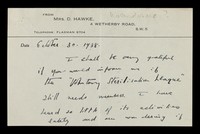 FROM
MRS. D. HAWKE,
4 WETHERBY ROAD,
S.W.5
TELEPHONE: FLAXMAN
Date October 30. 1938
I shall be very grateful
if you would inform me if
the "Voluntary Sterilisation League"
still needs members. I have
heard so little of its activities
lately and am now